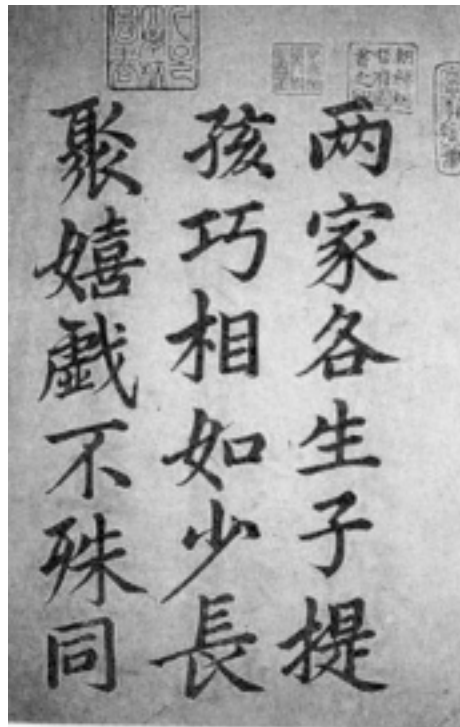 两家各生子提
孩巧相如少長
聚嬉戯不殊同